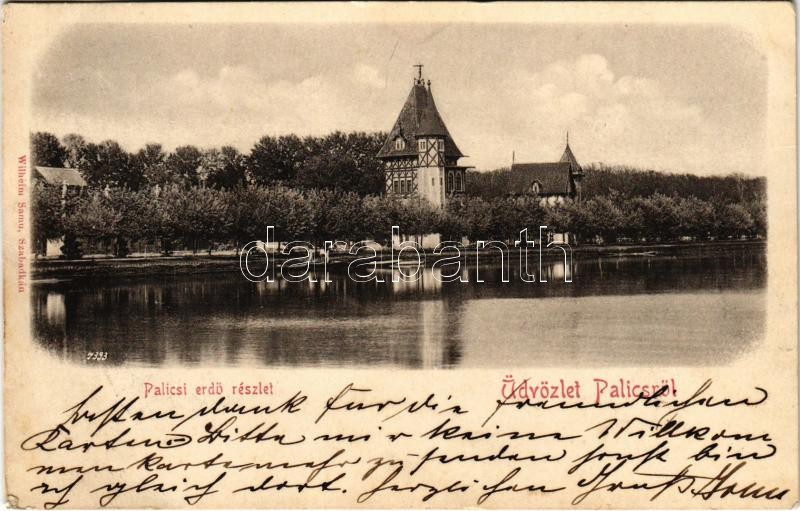 Wilhelm Samu, Szabadkán
darabanth
7393
Palicsi erdö részlet
Üdvözlet Palicsról
besten dank für die freundlichen
Karten. Bitte mir keine Willkom
men karte mehr zu senden sonst bin
ich gleich dort. Herzlichen Gruß